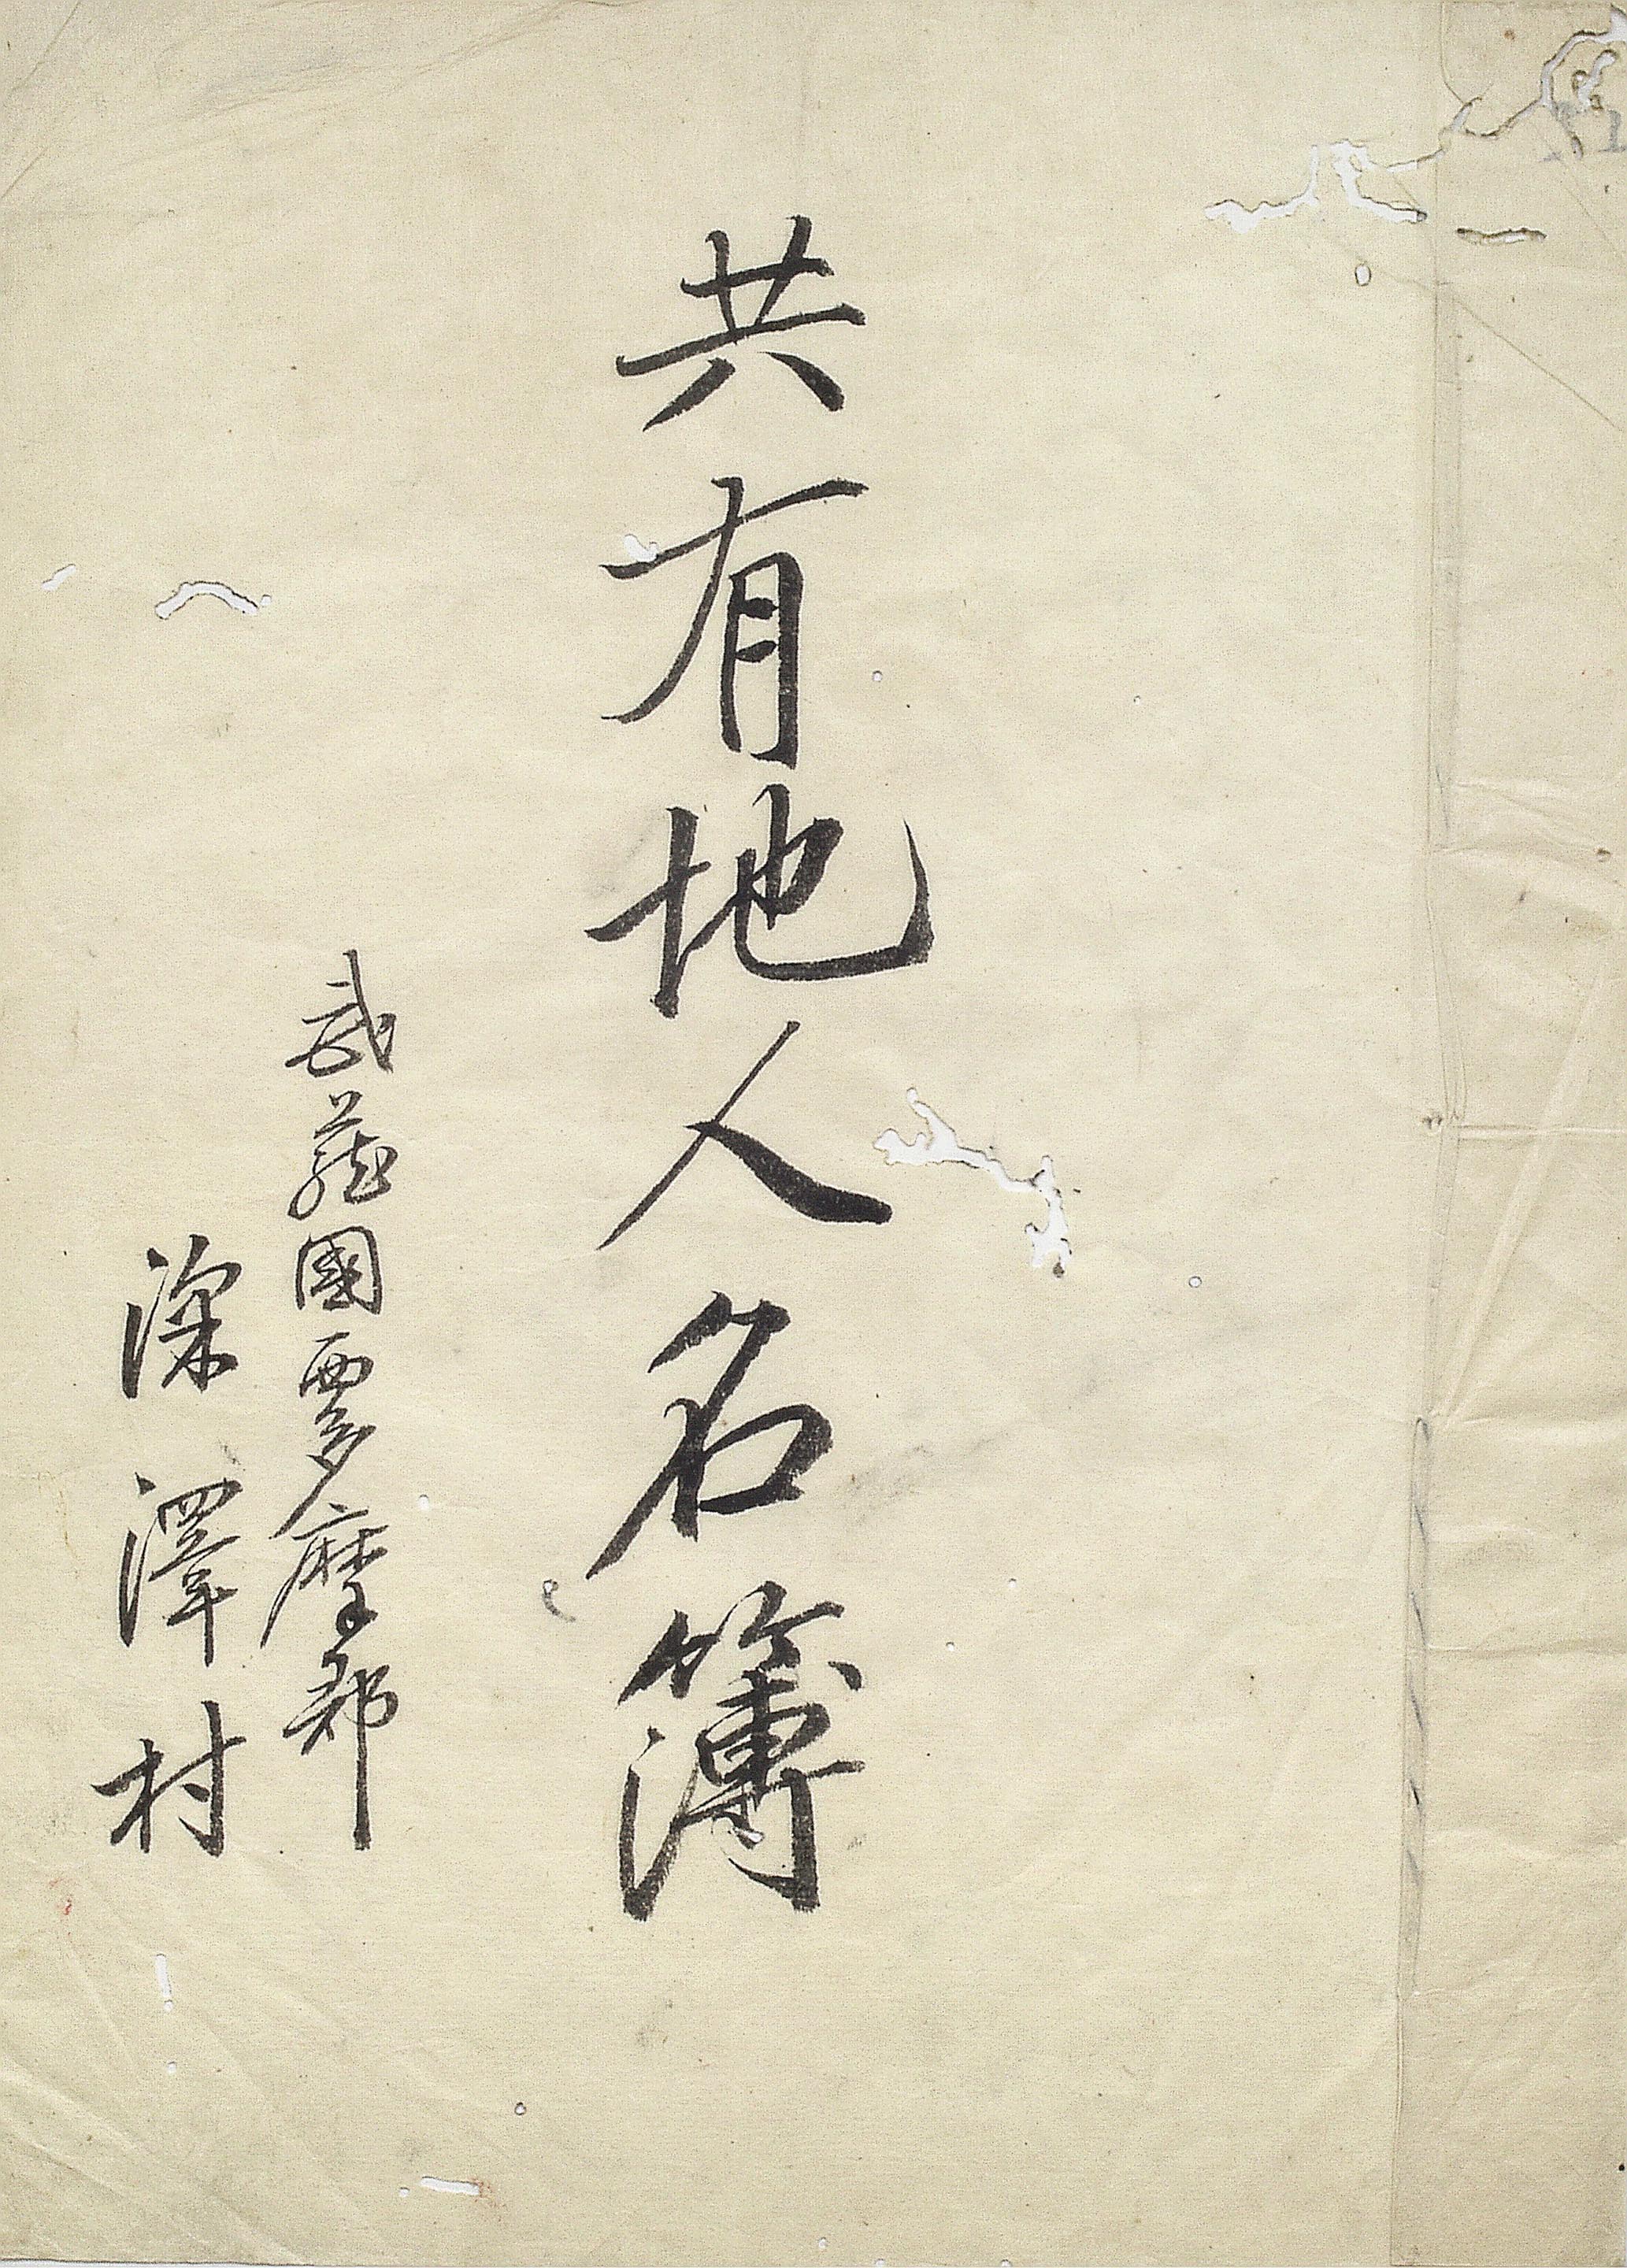 共有地人名簿
武藏國西多摩郡
深澤村